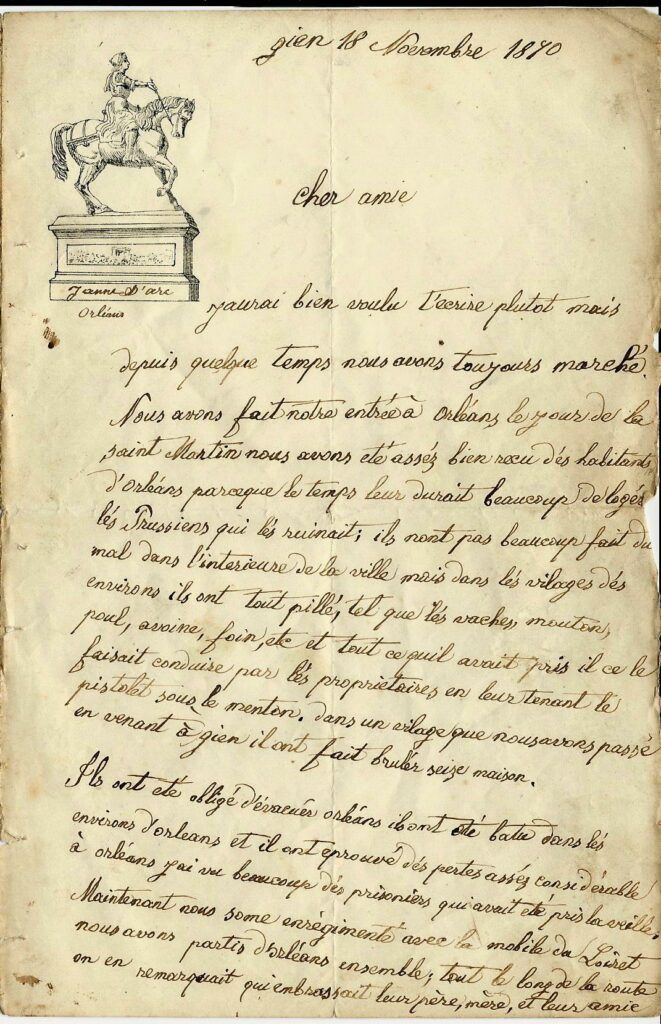 gien 18 Novembre 1870
cher amie
Jeanne D'arc
Orléans
jaurai bien voulu t'écrire plutot mais
depuis quelque temps nous avons toujours marché.
Nous avons fait notre entrée à Orléans le jour de la
saint Martin nous avons été assés bien recu dés habitants
d'Orléans parceque le temps leur durait beaucoup de logés
lés Prussiens qui lés ruinait; ils nont pas beaucoup fait du
mal dans l'interieure de la ville mais dans lés vilages dés
environs ils ont tout pillé, tel que lés vaches, mouton,
poul, avoine, foin, etc et tout ce quil avait pris il ce le
faisait conduire par lés propriétaires en leur tenant le
pistolet sous le menton. dans un vilage que nous avons passé
en venant à gien il ont fait brulér seize maison.
Ils ont été obligé d'évacuér orléans ils ont été batu dans lés
environs d'orleans et il ont éprouvé dés pertes assés considérable
à orléans j'ai vu beaucoup dés prisoniers qui avait été pris la veille.
Maintenant nous some enrégimenté avec la mobile du Loiret
nous avons partis d'orléans ensemble; tout le long de la route
on en remarquait qui embrassait leur père, mère, et leur amie